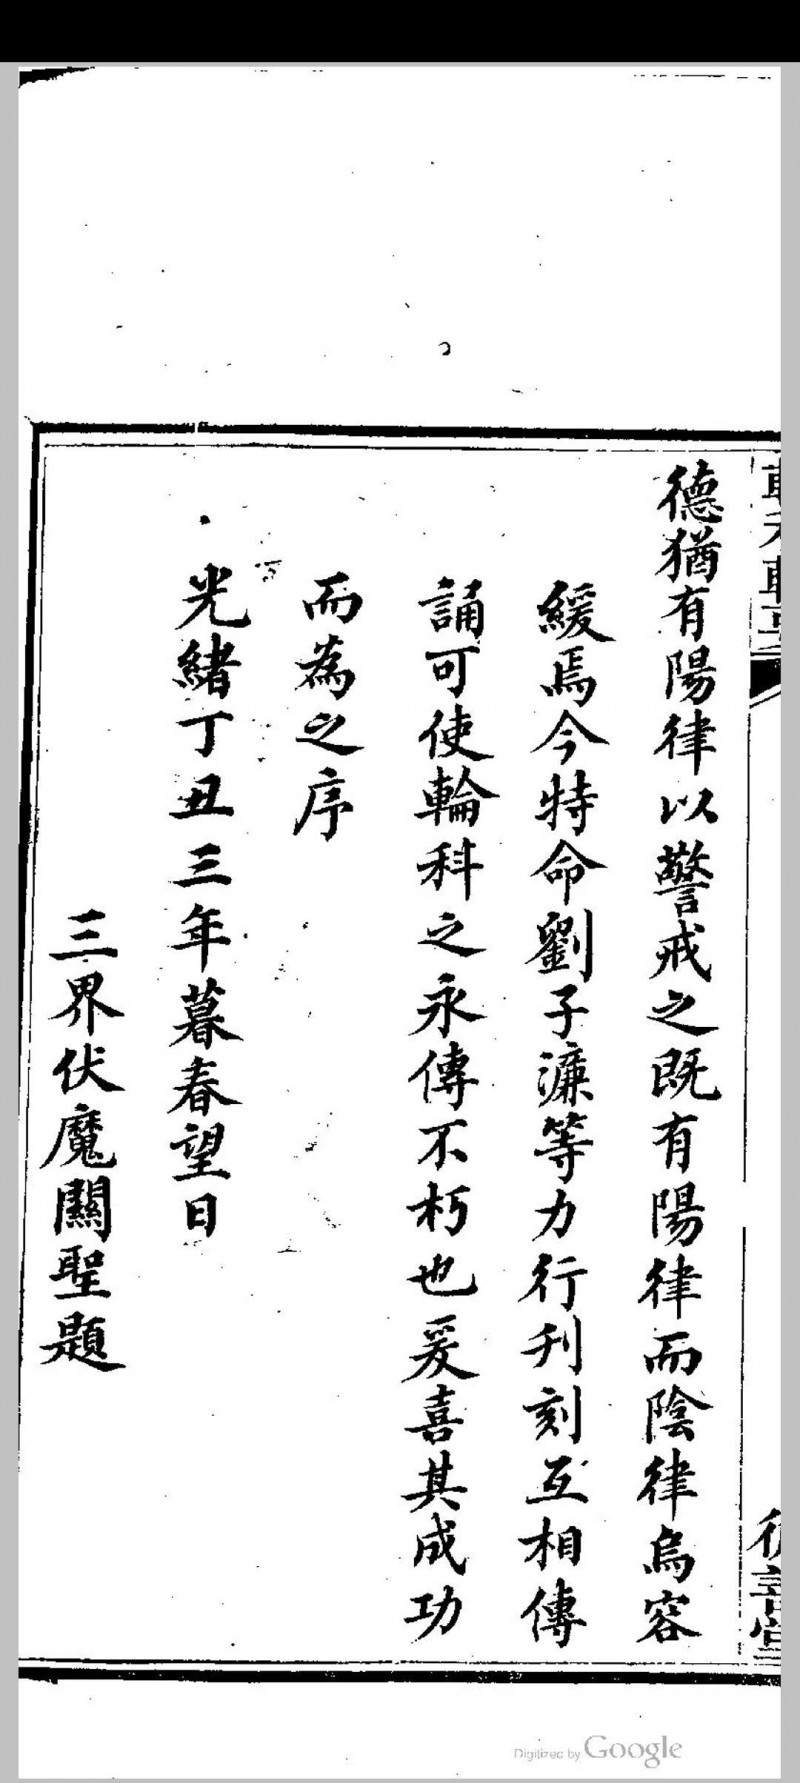 德猶有陽律以警戒之既有陽律而陰律烏容
緩焉今特命劉子濂等力行刋刻互相傳
誦可使輪科之永傳不朽也爰喜其成功
而為之序
光緒丁丑三年暮春望日
三界伏魔關聖題
Digitized by Google